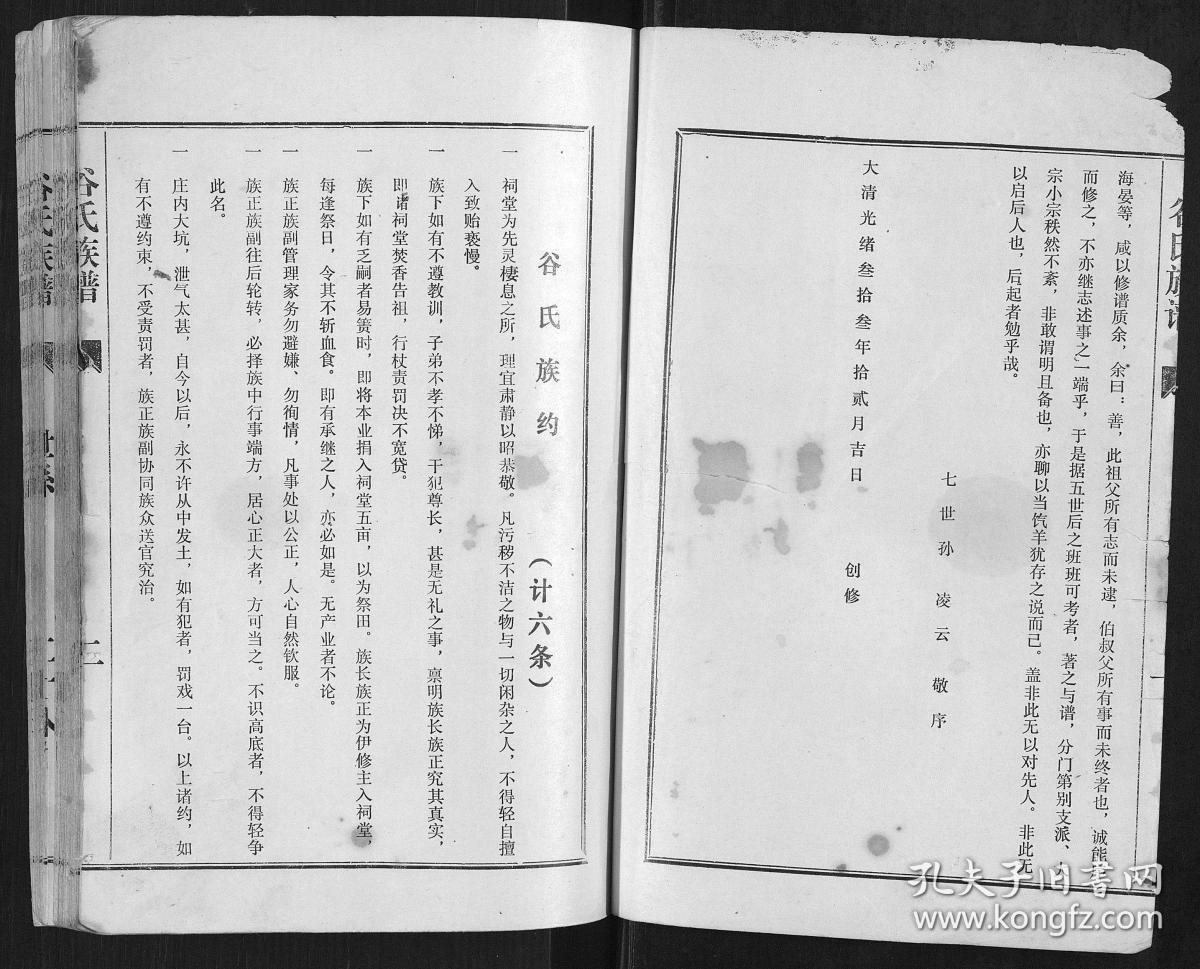 谷氏族谱
海晏等，咸以修谱质余，余曰：善，此祖父所有志而未逮，伯叔父所有事而未终者也，诚能
而修之，不亦继志述事之一端乎，于是据五世后之班班可考者，著之与谱，分门第别支派、大
宗小宗秩然不紊，非敢谓明且备也，亦聊以当饩羊犹存之说而己。盖非此无以对先人。非此无
以启后人也，后起者勉乎哉。
七世孙凌云敬序
大清光绪叁拾叁年拾贰月吉日
创修
谷氏族约
（计六条）
一 祠堂为先灵棲息之所，理宜肃静以昭恭敬。凡污秽不洁之物与一切闲杂之人，不得轻自擅
入致贻亵慢。
一 族下如有不遵教训，子弟不孝不悌，干犯尊长，甚是无礼之事，禀明族长族正究其真实，
即诸祠堂焚香告祖，行杖责罚决不宽贷。
一 族下如有乏嗣者易箦时，即将本业捐入祠堂五亩，以为祭田。族长族正为伊修主入祠堂，
每逢祭日，令其不斩血食。即有承继之人，亦必如是。无产业者不论。
一 族正族副管理家务勿避嫌、勿徇情，凡事处以公正，人心自然钦服。
一 族正族副往后轮转，必择族中行事端方，居心正大者，方可当之。不识高底者，不得轻争
此名。
一 庄内大坑，泄气太甚，自今以后，永不许从中发土，如有犯者，罚戏一台。以上诸约，如
有不遵约束，不受责罚者，族正族副协同族众送官究治。
谷氏族谱
二
谷氏族谱
世系
孔夫子旧书网
www.kongfz.com